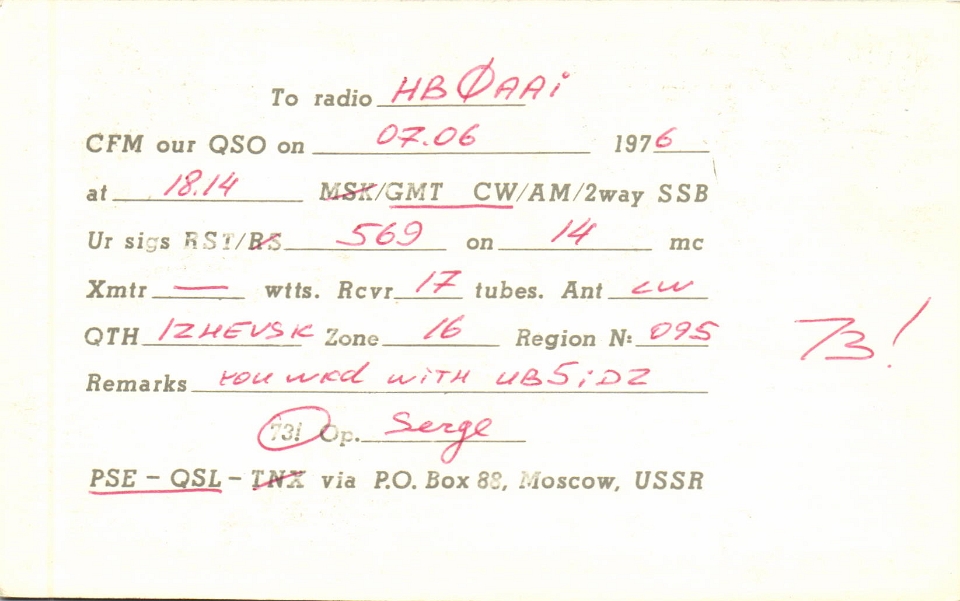 To radio HBØAAi
CFM our QSO on 07.06 1976
at 18.14 MSK/GMT CW/AM/2way SSB
Ur sigs RST/RS 569 on 14 mc
Xmtr — wtts. Rcvr 17 tubes. Ant LW
QTH IZHEVSK Zone 16 Region N: 095
73!
Remarks you wkd with UB5iDZ
73! Op. Serge
PSE – QSL – TNX via P.O. Box 88, Moscow, USSR